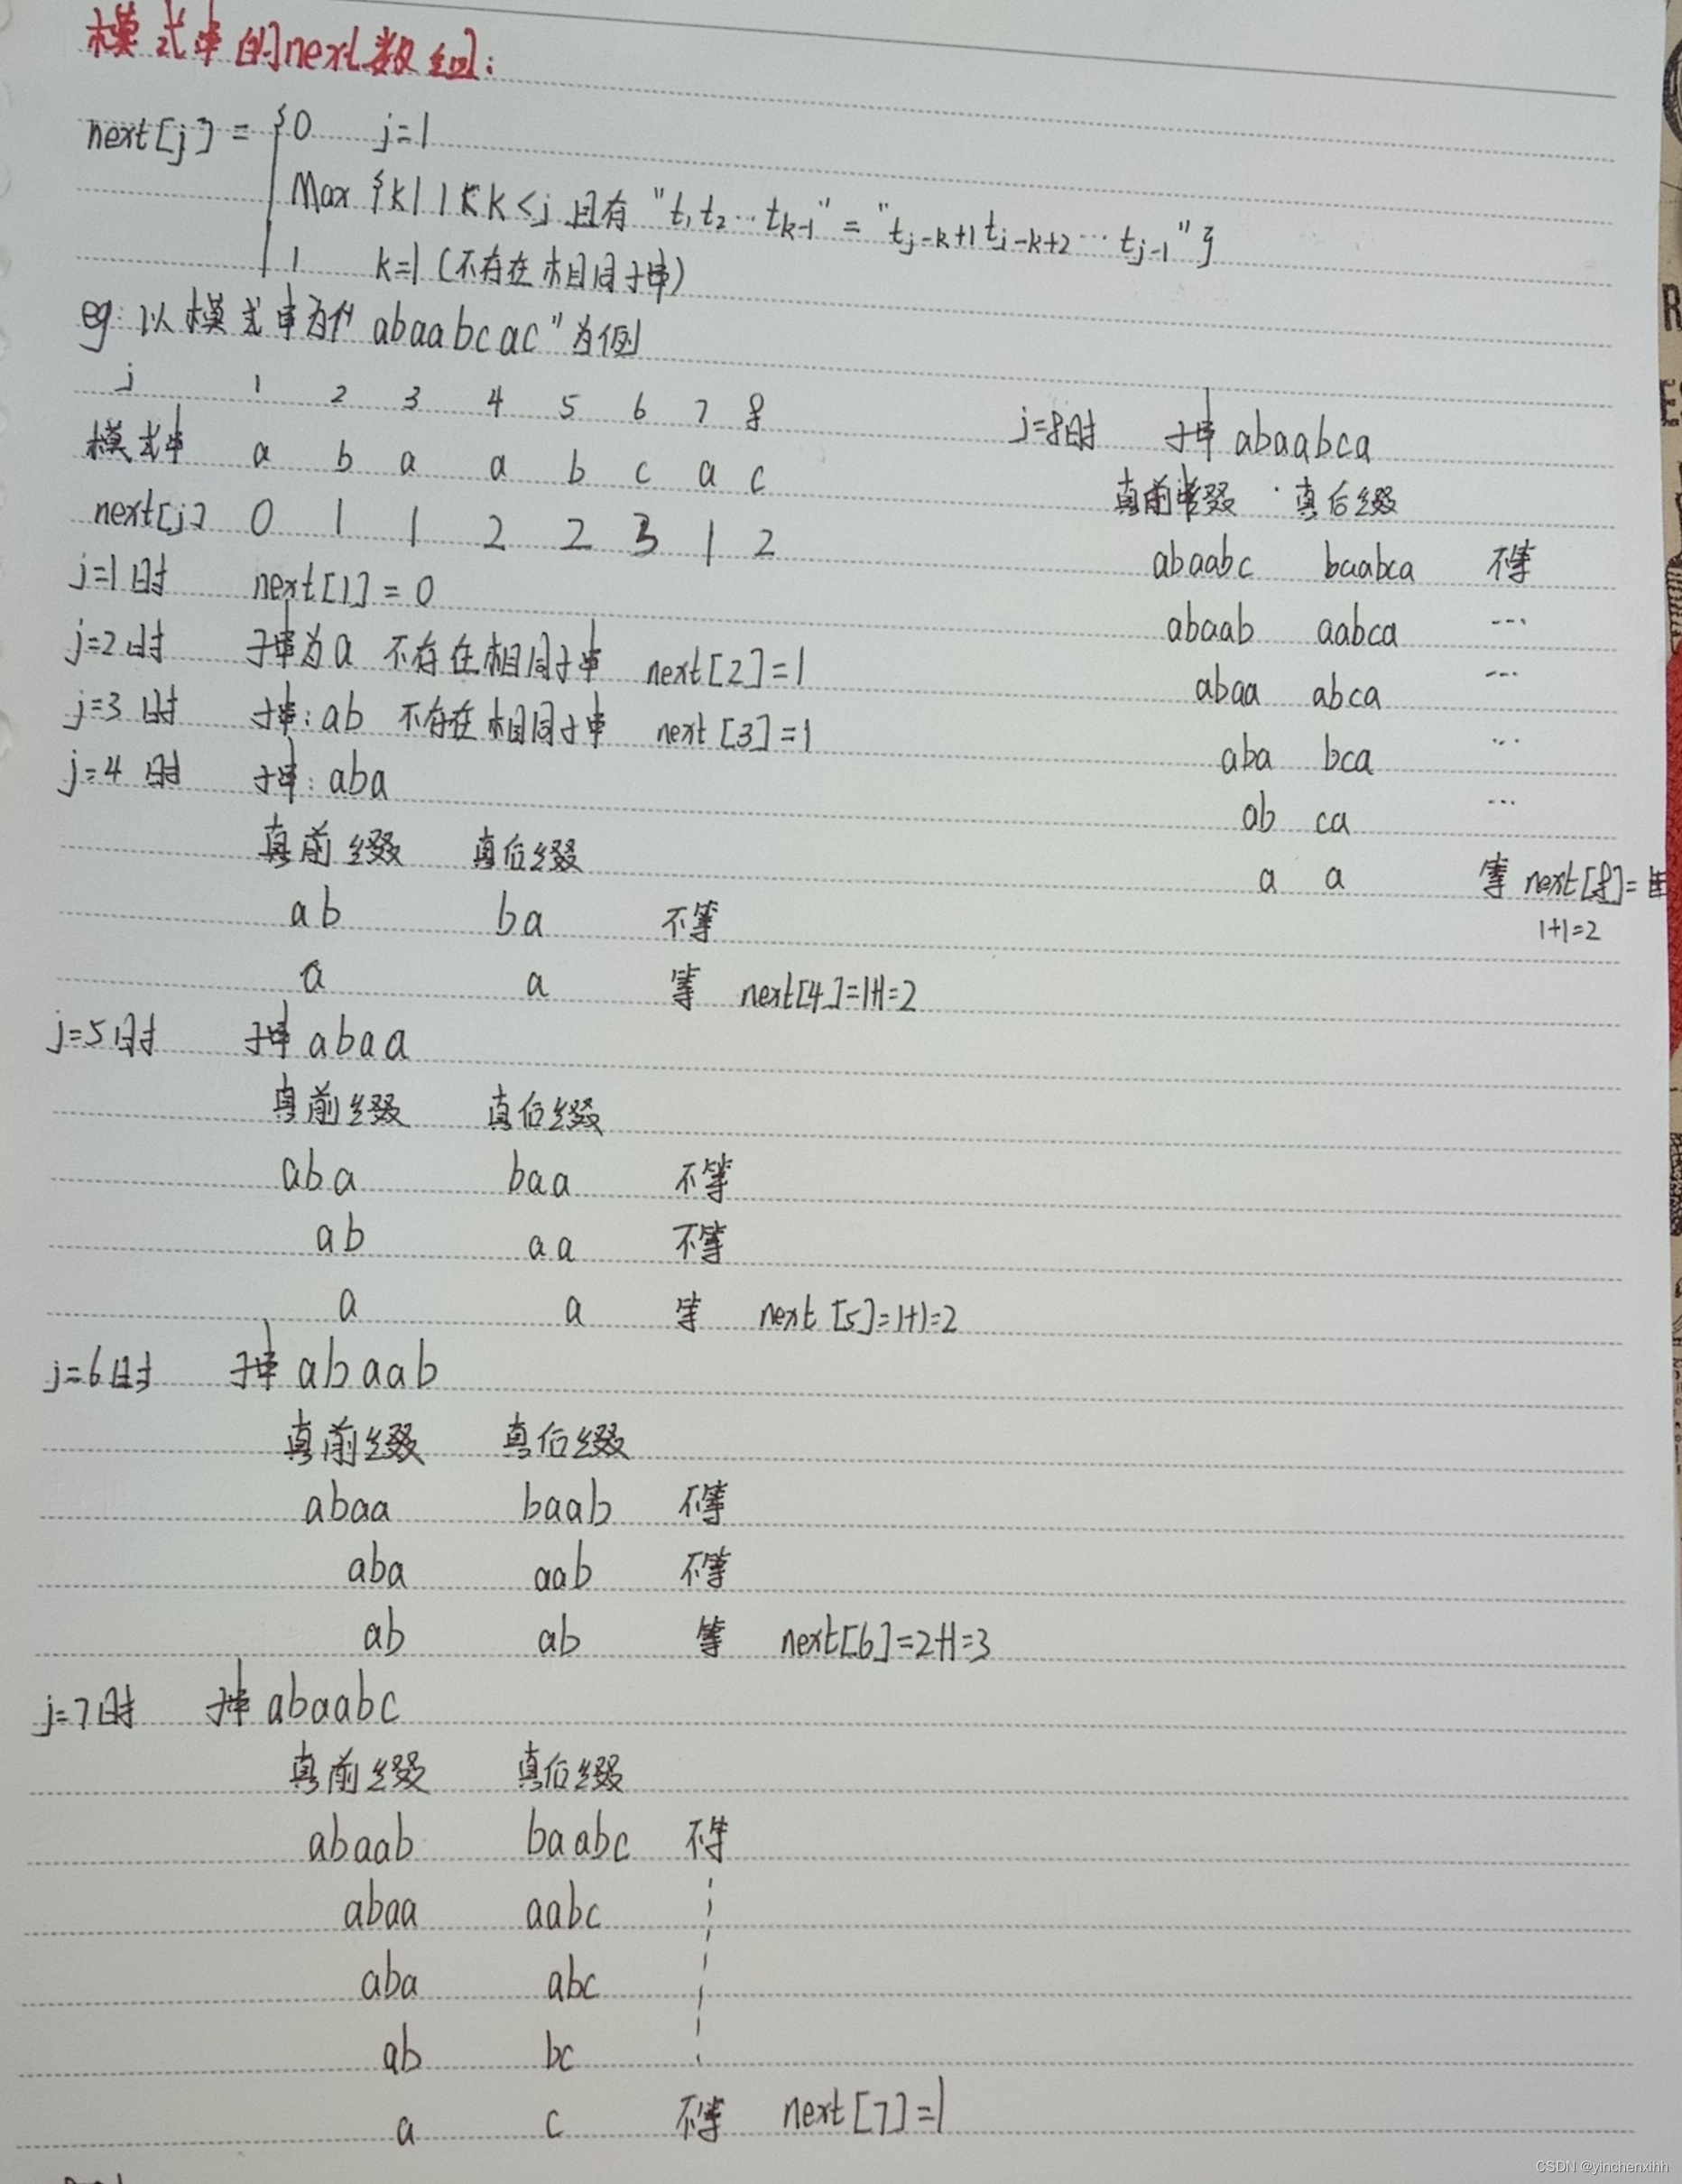 模式串的next数组:
next[j] = { 0 j=1
Max {k| 1<k<j 且有 "t₁t₂…tₖ₋₁" = "tⱼ₋ₖ₊₁tⱼ₋ₖ₊₂…tⱼ₋₁"}
1 k=1 (不存在相同子串)
eg: 以模式串为"abaabcac"为例
j 1 2 3 4 5 6 7 8
模式串 a b a a b c a c
next[j] 0 1 1 2 2 3 1 2
j=1时 next[1]=0
j=2时 子串为a 不存在相同子串 next[2]=1
j=3时 子串:ab 不存在相同子串 next[3]=1
j=4时 子串:aba
真前缀 真后缀
ab ba 不等
a a 等 next[4]=1+1=2
j=5时 子串abaa
真前缀 真后缀
aba baa 不等
ab aa 不等
a a 等 next[5]=1+1=2
j=6时 子串abaab
真前缀 真后缀
abaa baab 不等
aba aab 不等
ab ab 等 next[6]=2+1=3
j=7时 子串abaabc
真前缀 真后缀
abaab baabc 不等
abaa aabc
aba abc
ab bc
a c 不等 next[7]=1
j=8时 子串abaabca
真前缀 真后缀
abaabc baabca 不等
abaab aabca …
abaa abca …
aba bca …
ab ca …
a a 等 next[8]=
1+1=2
CSDN @yinchenxihh